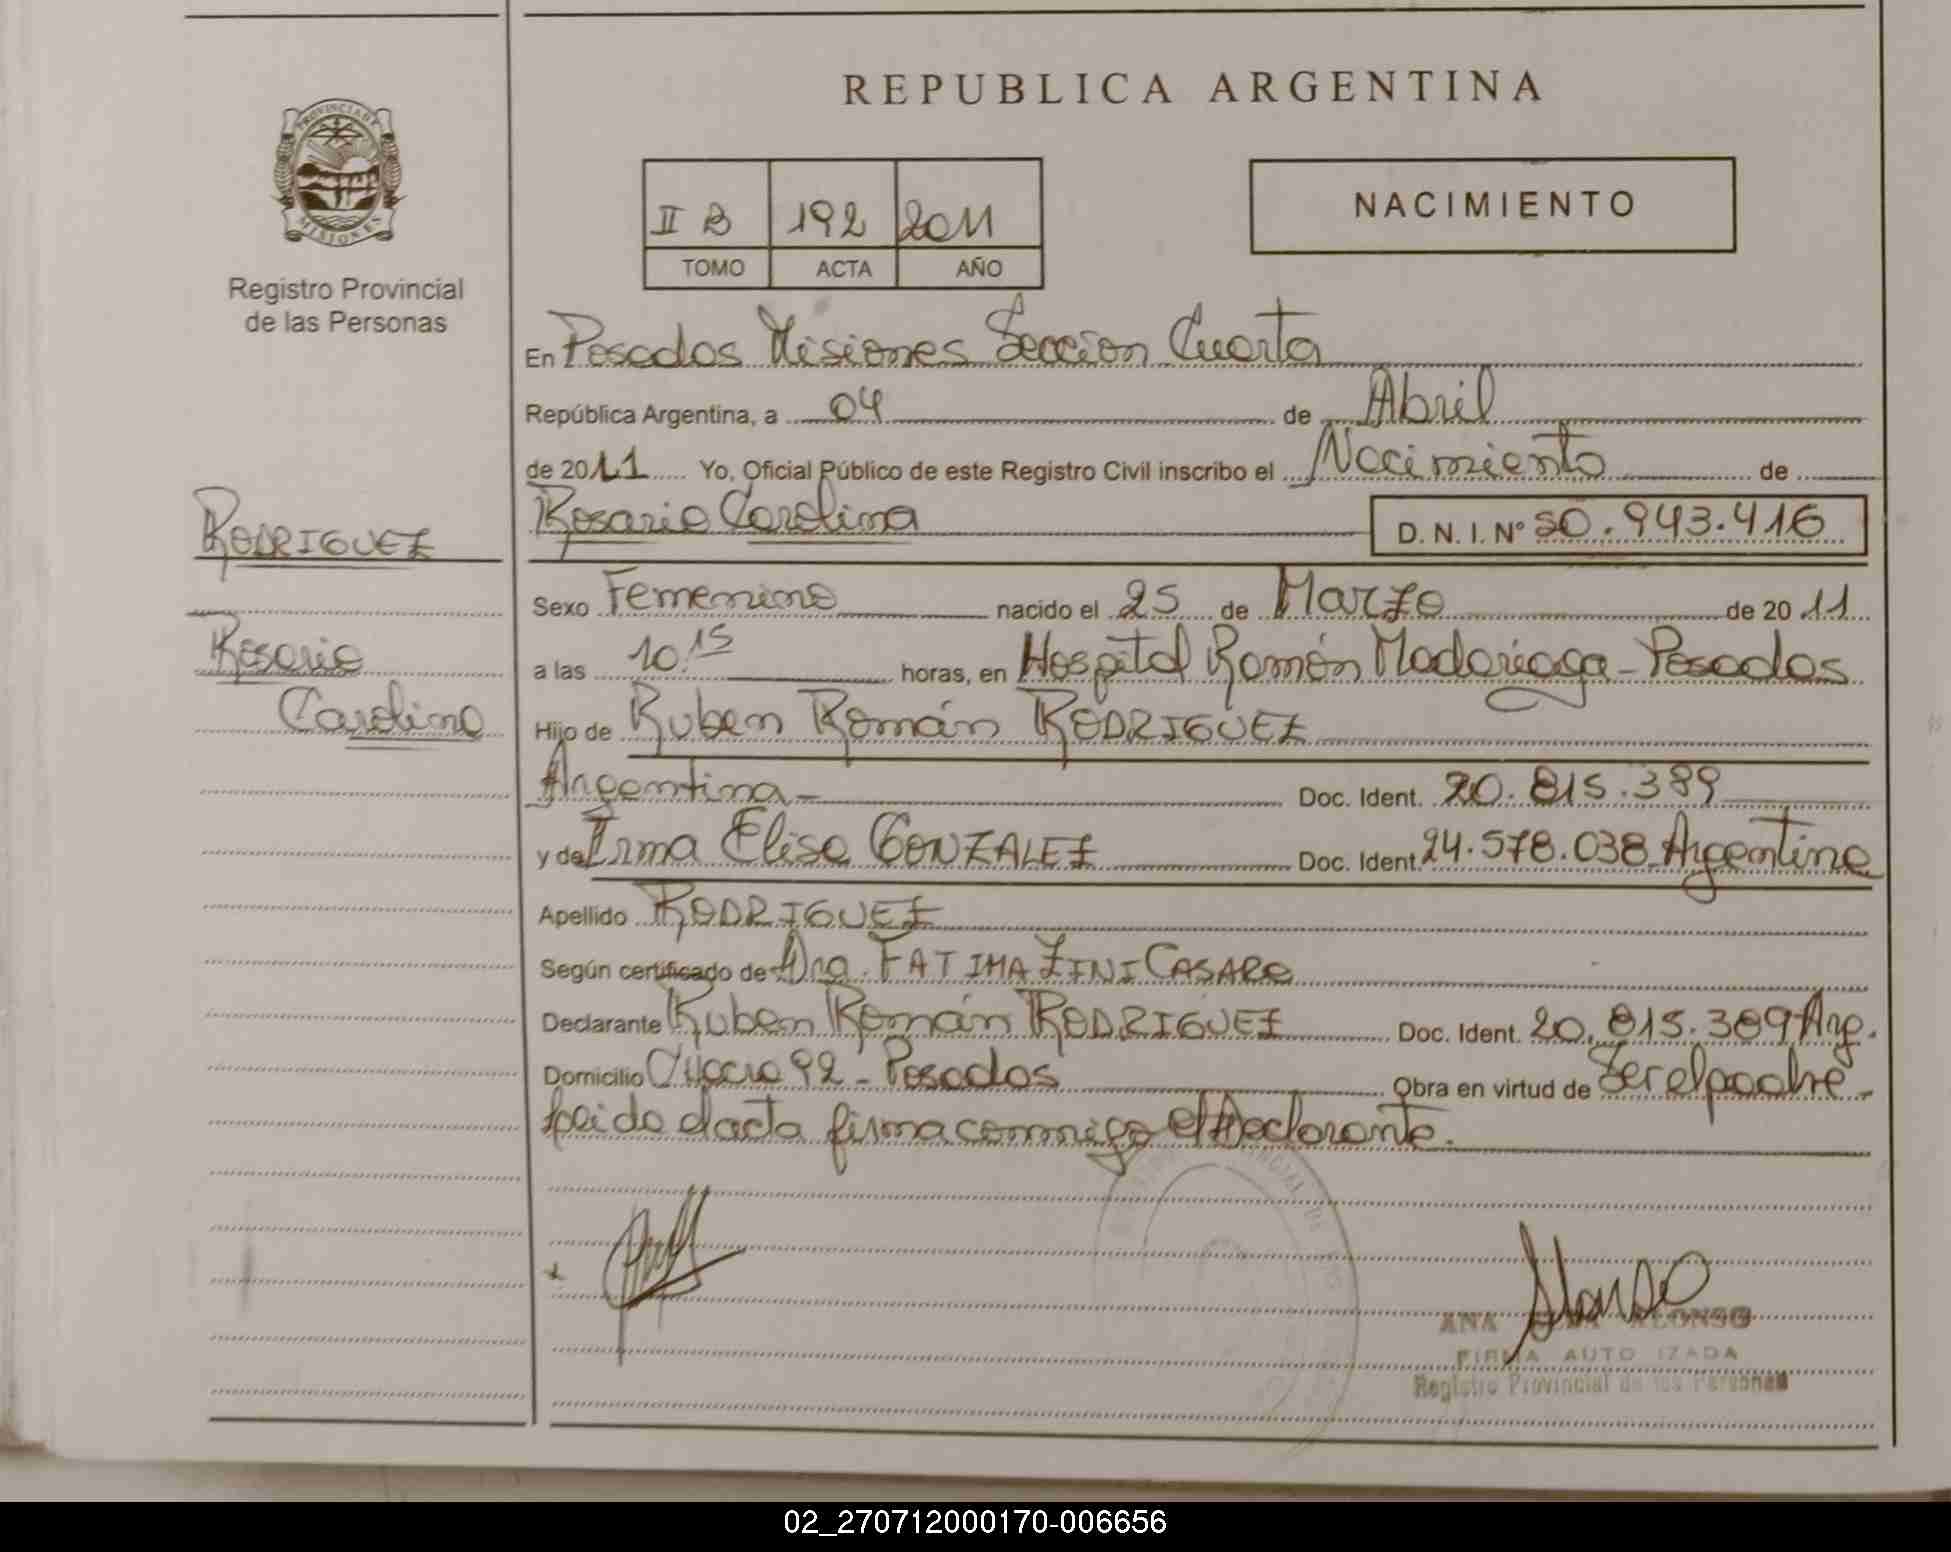 REPUBLICA ARGENTINA
PROVINCIA DE
MISIONES
Registro Provincial
de las Personas
II B 192 2011
TOMO ACTA AÑO
NACIMIENTO
En Posadas Misiones Seccion Cuarta
República Argentina, a 04 de Abril
de 2011 Yo, Oficial Público de este Registro Civil inscribo el Nacimiento de
RODRIGUEZ
Rosario Carolina D. N. I. Nº 50.943.416
Sexo Femenino nacido el 25 de Marzo de 2011
Rosario
Carolina
a las 10.15 horas, en Hospital Ramón Madariaga - Posadas
Hijo de Ruben Román RODRIGUEZ
Argentina - Doc. Ident. 20.815.389
y de Irma Elisa GONZALEZ Doc. Ident. 24.578.038 Argentina
Apellido RODRIGUEZ
Según certificado de Dra. FATIMA ZINI CASARO
Declarante Ruben Román RODRIGUEZ Doc. Ident. 20.815.389 Arg.
Domicilio 92 - Posadas Obra en virtud de Ser el padre -
leido el acta firma conmigo el Declarante.
ANA ALONSO
FIRMA AUTO IZADA
Registro Provincial de las Personas
02_270712000170-006656